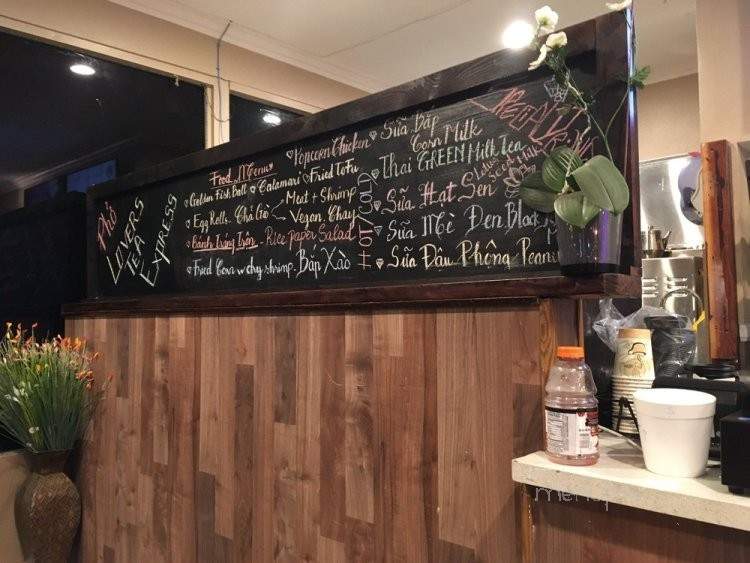 Phở
LOVERS
TEA
EXPRESS
Food Menu
Golden Fish Ball
Egg Rolls. Chả Giò
Meat + Shrimp
Vegan. Chay
Bánh Tráng Trộn - Rice PAPER SALAD
Fried Corn w dry shrimp. Bắp Xào
Calamari
Popcorn Chicken
Fried ToFu
HOT/COLD
Sữa Bắp
Corn Milk
Thai GREEN Milk Tea
Sữa Hạt Sen
Lotus
Seed Milk
Sữa Mè Đen. Black
Sữa Đậu Phộng Peanu